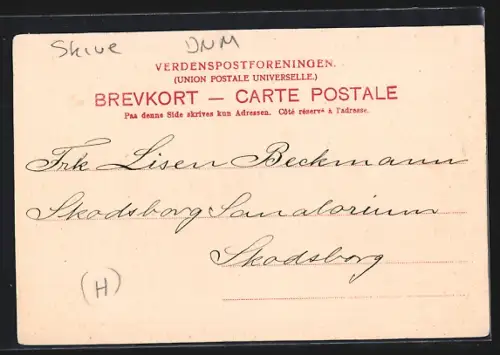 Skive DNM
VERDENSPOSTFORENINGEN.
(UNION POSTALE UNIVERSELLE.)
BREVKORT — CARTE POSTALE
Paa denne Side skrives kun Adressen. Côté réservé à l'adresse.
Frk Lisen Beckmann
Skodsborg Sanatorium
Skodsborg
(H)